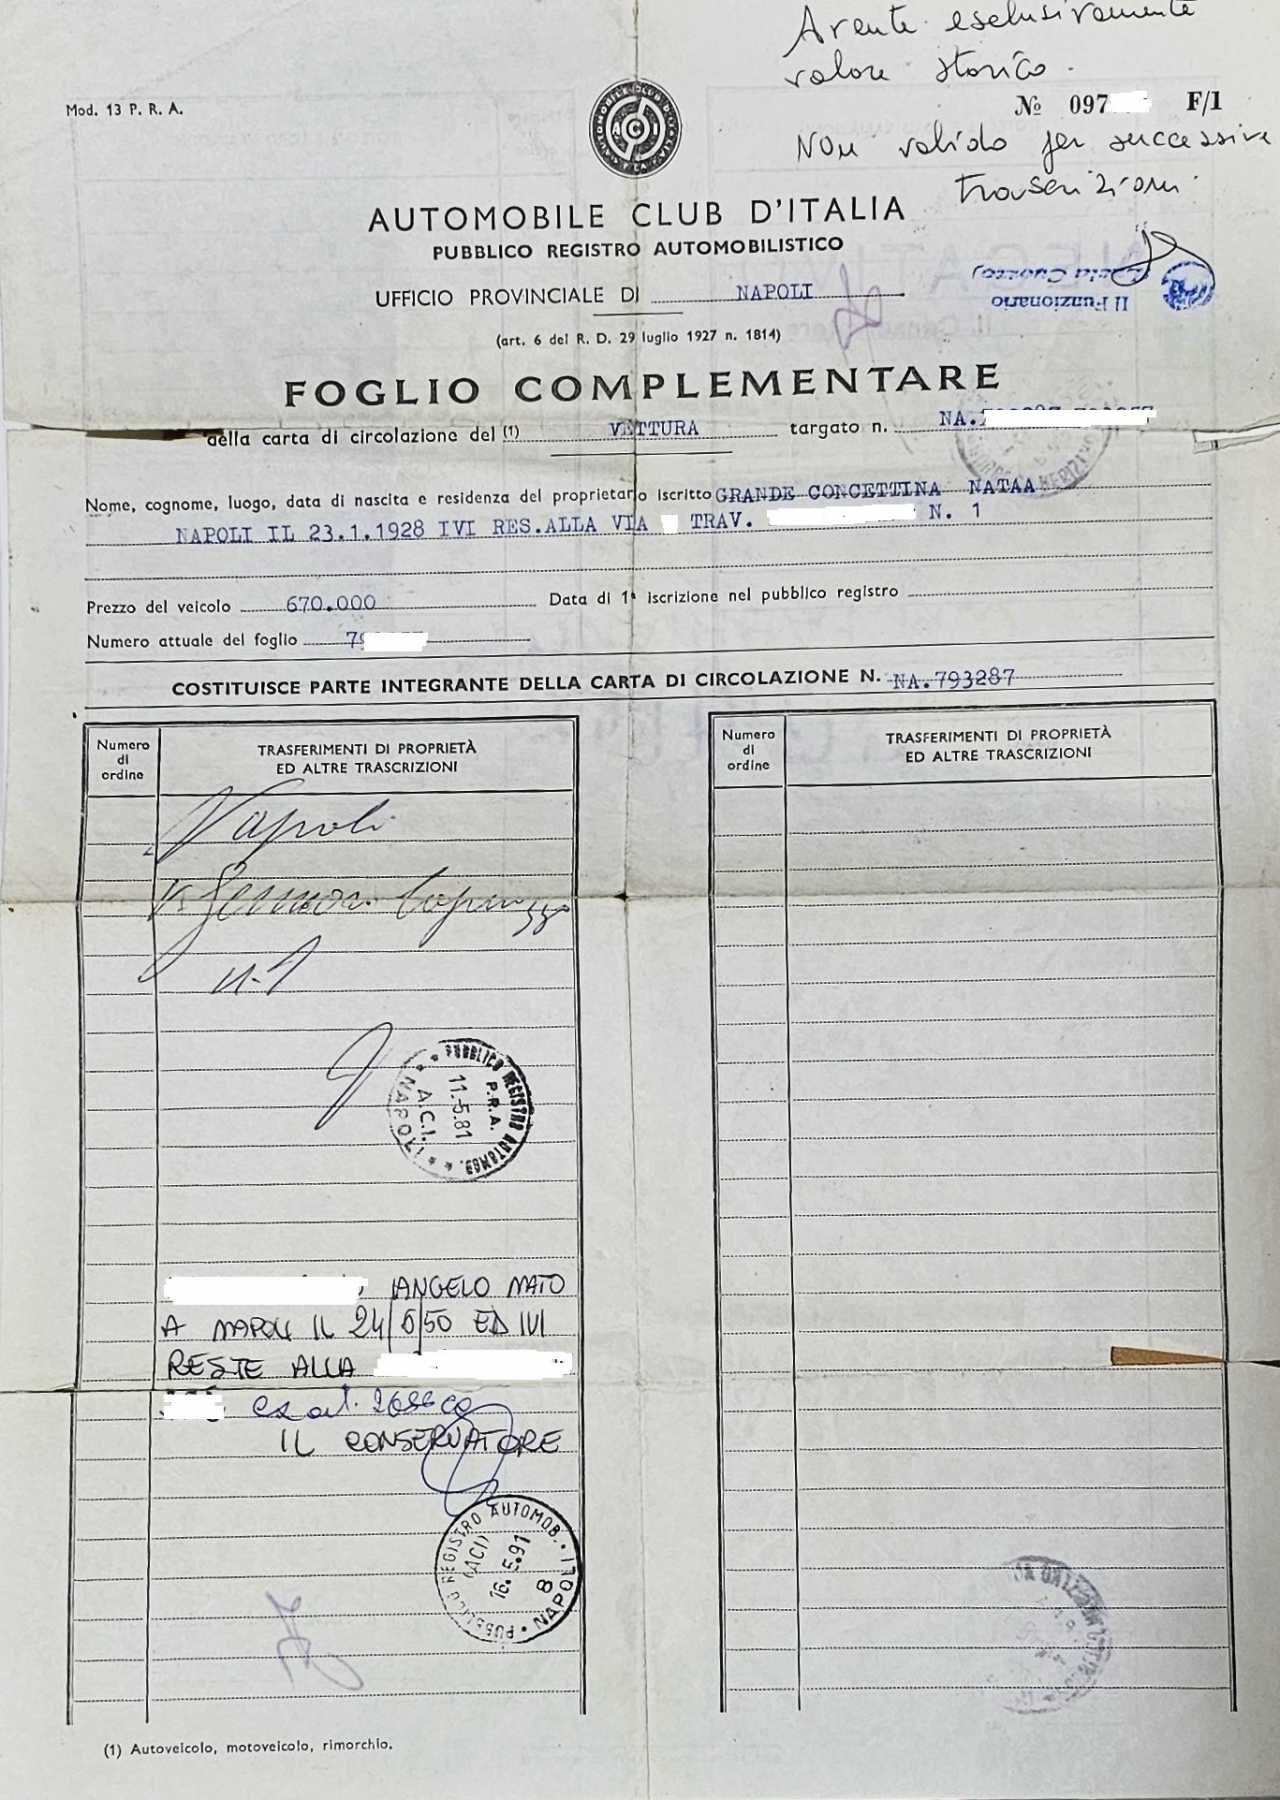 Avente esclusivamente
valore storico.
Mod. 13 P. R. A.
Nº 097 F/1
Non valido per successive
trascrizioni
AUTOMOBILE CLUB D'ITALIA
PUBBLICO REGISTRO AUTOMOBILISTICO
Il Funzionario
UFFICIO PROVINCIALE DI NAPOLI
(art. 6 del R. D. 29 luglio 1927 n. 1814)
FOGLIO COMPLEMENTARE
della carta di circolazione del (1) VETTURA targato n. NA.
Nome, cognome, luogo, data di nascita e residenza del proprietario iscritto GRANDE CONCETTINA NATAA
NAPOLI IL 23.1.1928 IVI RES.ALLA VIA TRAV. N. 1
Prezzo del veicolo 670.000 Data di 1ª iscrizione nel pubblico registro
Numero attuale del foglio 79
COSTITUISCE PARTE INTEGRANTE DELLA CARTA DI CIRCOLAZIONE N. NA.793287
Numero di ordine
TRASFERIMENTI DI PROPRIETÀ
ED ALTRE TRASCRIZIONI
Numero di ordine
TRASFERIMENTI DI PROPRIETÀ
ED ALTRE TRASCRIZIONI
Napoli
n. 1
PUBBLICO REGISTRO AUTOMOB.
P.R.A.
11.5.81
A.C.I.
NAPOLI
ANGELO NATO
A NAPOLI IL 24/6/50 ED IVI
RES.TE ALLA
IL CONSERVATORE
PUBBLICO REGISTRO AUTOMOB. NAPOLI
(ACI)
16.5.91
8
(1) Autoveicolo, motoveicolo, rimorchio.